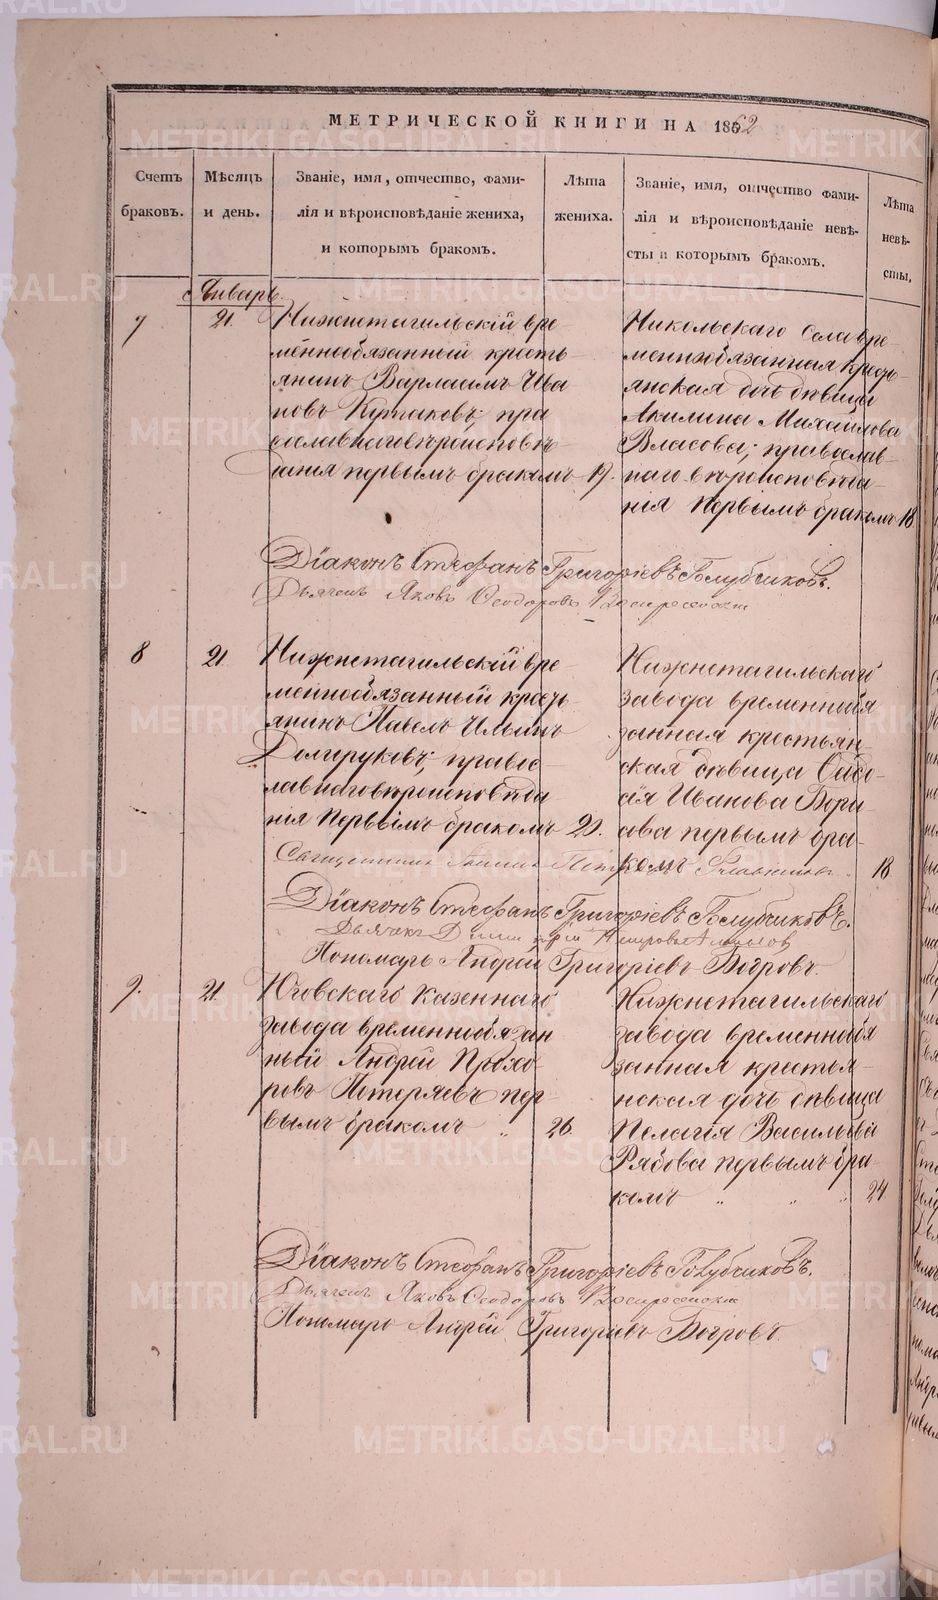 МЕТРИЧЕСКОЙ КНИГИ НА 1862
Счетъ
браковъ.
Мѣсяцъ
и день.
Званіе, имя, отчество, фами-
лія и вѣроисповѣданіе жениха,
и которымъ бракомъ.
Лѣта
жениха.
Званіе, имя, отчество фами-
лія и вѣроисповѣданіе невѣ-
сты и которымъ бракомъ.
Лѣта
невѣ-
сты.
Январь.
7
21.
Нижнетагильскій вре-
меннообязанный кресть-
янинъ Варлаамъ Ива
новъ пра
вославнаговѣроисповѣ
данія первымъ бракомъ
19.
Никольскаго села вре-
меннообязанная кресть-
янская дочь дѣвица
Акилина Михайлова
Власова; православ-
наго вѣроисповѣда-
нія первымъ бракомъ
18
Діаконъ Стефанъ Григоріевъ Голубчиковъ.
Дьячекъ Яковъ Ѳеодоровъ Воскресенскій
8
21.
Нижнетагильскій вре-
меннообязанный кресть-
янинъ Павелъ Ильинъ
Долгруковъ; правос-
лавнаговѣроисповѣда
нія первымъ бракомъ
20.
Нижнетагильскаго
завода временнобя
занная крестьян-
ская дѣвица
Иванова
первымъ бра-
комъ
18
Священникъ
Діаконъ Стефанъ Григоріевъ Голубчиковъ.
Дьячекъ Димитрій Петровъ
Пономарь Андрей Григоріевъ Бобровъ.
9.
21.
Юговскаго казеннаго
завода временнобязан
ный Андрей Прохо-
ровъ Потеряевъ пер-
вымъ бракомъ "
26.
Нижнетагильскаго
завода временнобя
занная крестья-
нская дочь дѣвица
Пелагія Васильева
Рябова первымъ бра-
комъ " " "
24
Діаконъ Стефанъ Григоріевъ Голубчиковъ.
Дьячекъ Яковъ Ѳеодоровъ Воскресенскій
Пономарь Андрей Григоріевъ Бобровъ.
METRIKI.GASO-URAL.RU